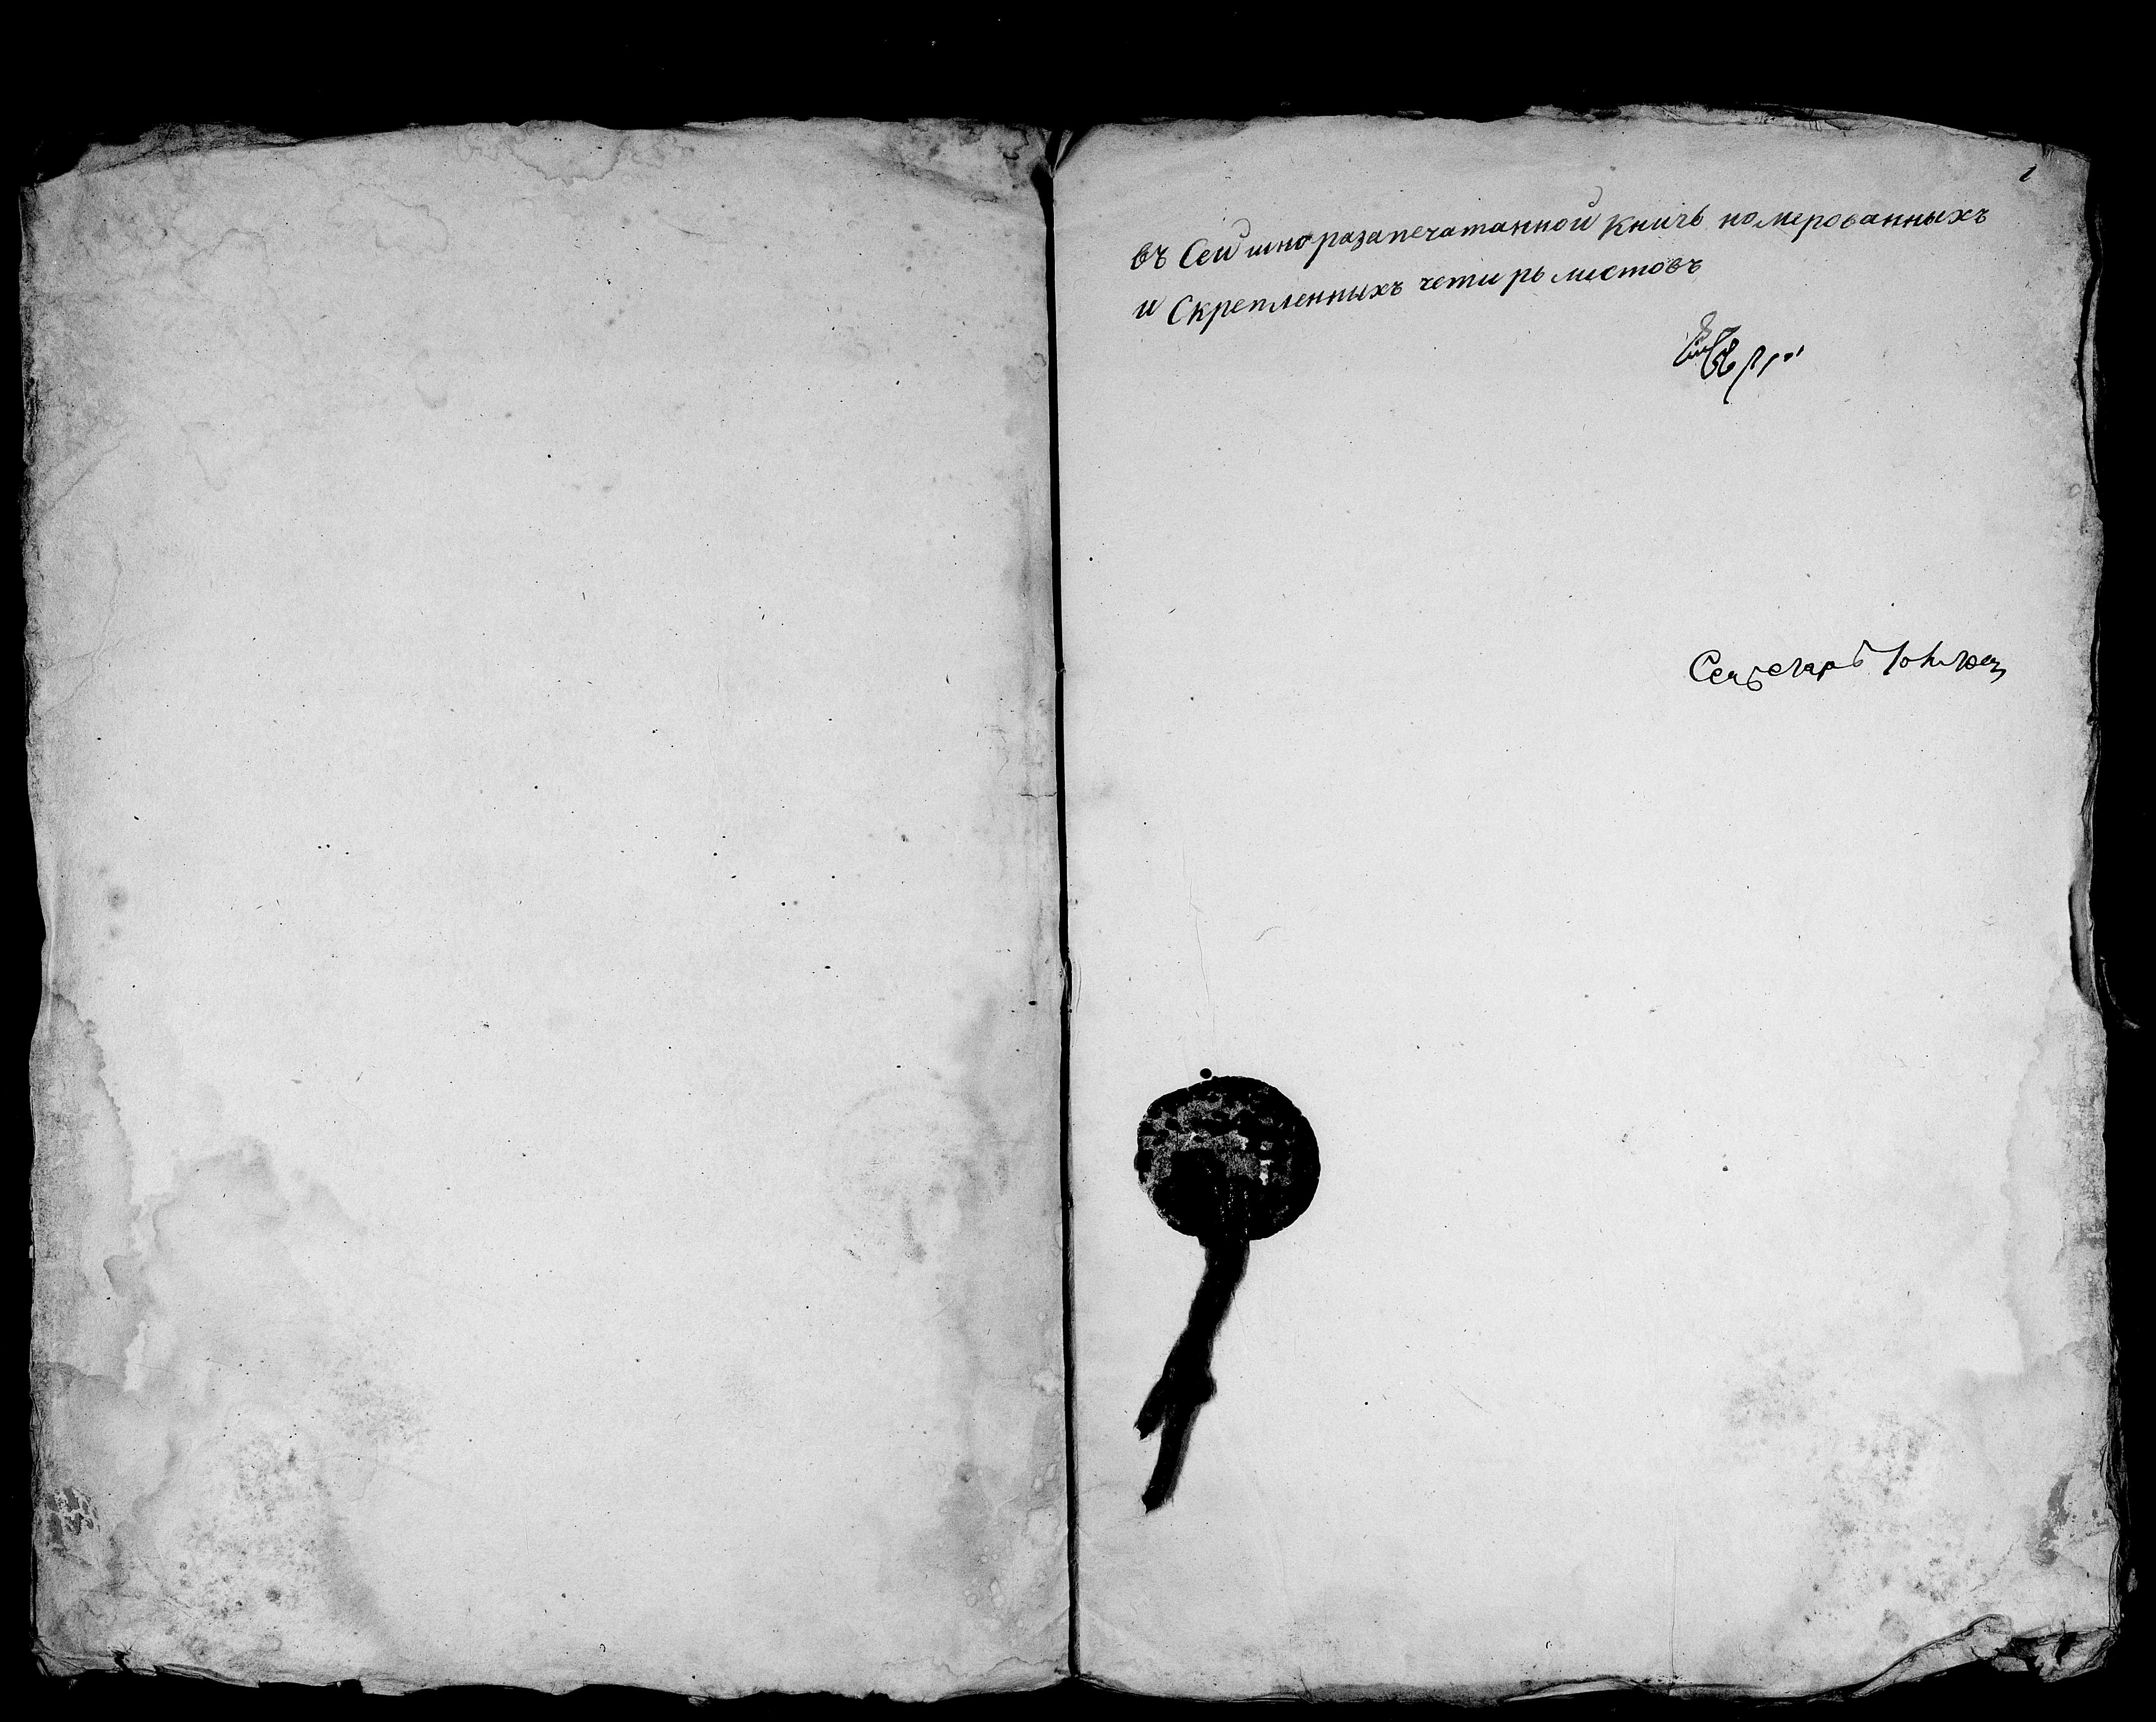 1
въ Сей шноразапечатанной книгѣ номерованныхъ
и Скрепленныхъ четирѣ листовъ
Секретарь